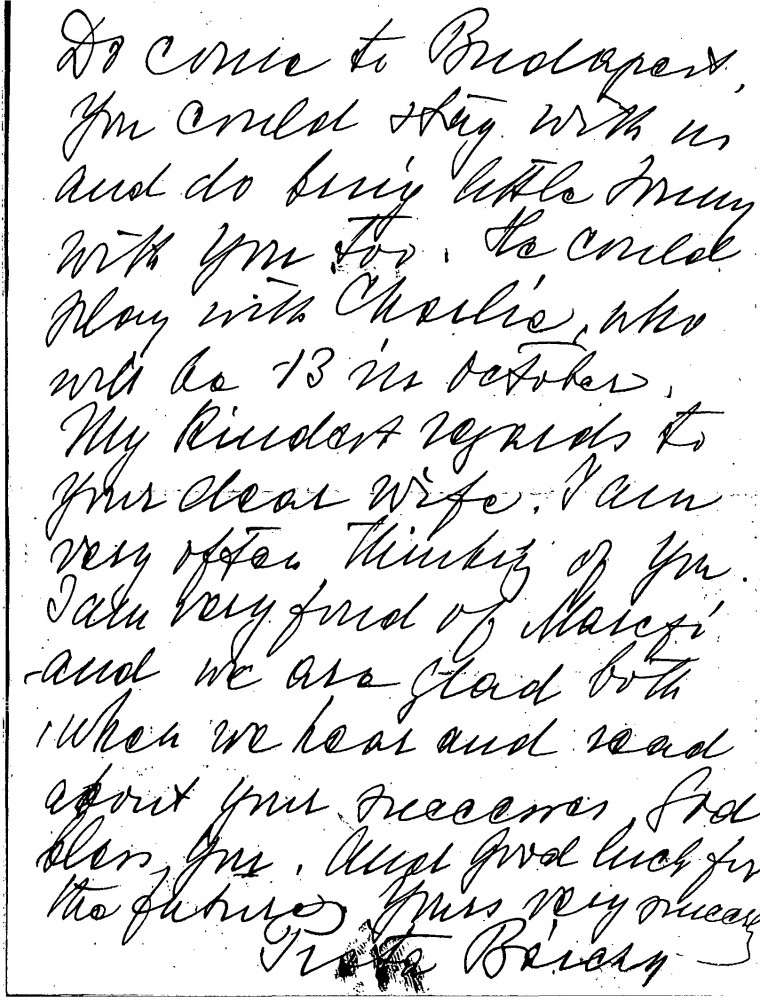 Do come to Budapest,
You could stay with us
and do bring little
with You too. He could
play with Charlie, who
will be 13 in October.
My kindest regards to
your dear wife. I am
very often thinking of You.
I am very fond of Marczi
and we are glad both
when we hear and read
about your successes. God
bless You. And good luck for
the future. Yours very
Bárczy